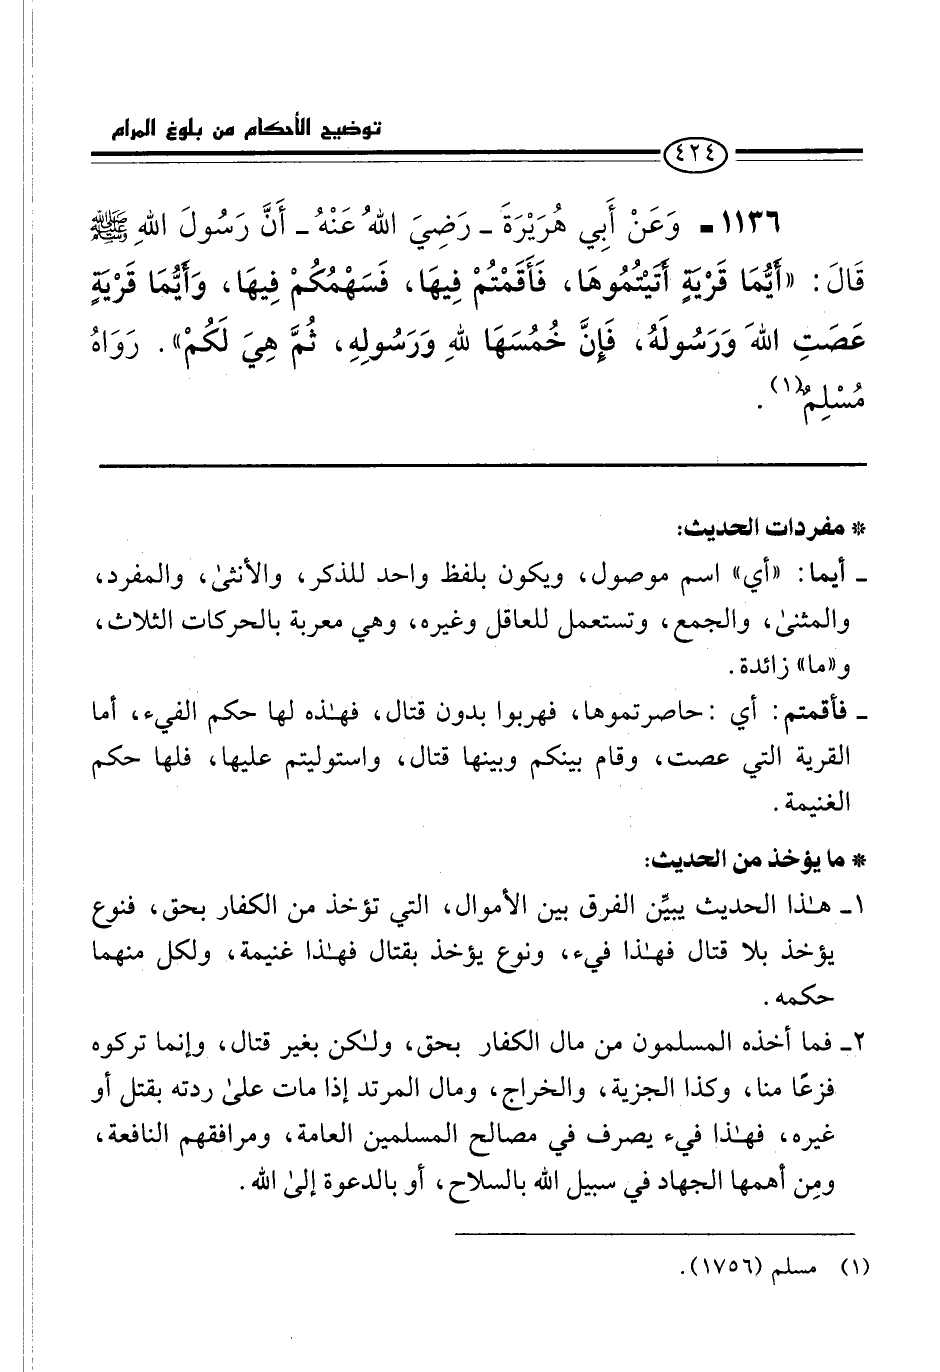 توضيح الأحكام من بلوغ المرام
٤٢٤
١١٣٦ - وَعَنْ أَبِي هُرَيْرَةَ - رَضِيَ اللهُ عَنْهُ - أَنَّ رَسُولَ اللهِ ﷺ
قَالَ: «أَيُّمَا قَرْيَةٍ أَتَيْتُمُوهَا، فَأَقَمْتُمْ فِيهَا، فَسَهْمُكُمْ فِيهَا، وَأَيُّمَا قَرْيَةٍ
عَصَتِ اللهَ وَرَسُولَهُ، فَإِنَّ خُمُسَهَا للهِ وَرَسُولِهِ، ثُمَّ هِيَ لَكُمْ». رَوَاهُ
مُسْلِمٌ(١).
* مفردات الحديث:
ـ أيما: «أي» اسم موصول، ويكون بلفظ واحد للذكر، والأنثىٰ، والمفرد،
والمثنىٰ، والجمع، وتستعمل للعاقل وغيره، وهي معربة بالحركات الثلاث،
و«ما» زائدة.
ـ فأقمتم: أي: حاصرتموها، فهربوا بدون قتال، فهٰذه لها حكم الفيء، أما
القرية التي عصت، وقام بينكم وبينها قتال، واستوليتم عليها، فلها حكم
الغنيمة.
* ما يؤخذ من الحديث:
١ـ هٰذا الحديث يبيِّن الفرق بين الأموال، التي تؤخذ من الكفار بحق، فنوع
يؤخذ بلا قتال فهٰذا فيء، ونوع يؤخذ بقتال فهٰذا غنيمة، ولكل منهما
حكمه.
٢ـ فما أخذه المسلمون من مال الكفار بحق، ولٰكن بغير قتال، وإنما تركوه
فزعًا منا، وكذا الجزية، والخراج، ومال المرتد إذا مات علىٰ ردته بقتل أو
غيره، فهٰذا فيء يصرف في مصالح المسلمين العامة، ومرافقهم النافعة،
ومِن أهمها الجهاد في سبيل الله بالسلاح، أو بالدعوة إلىٰ الله.
(١) مسلم (١٧٥٦).